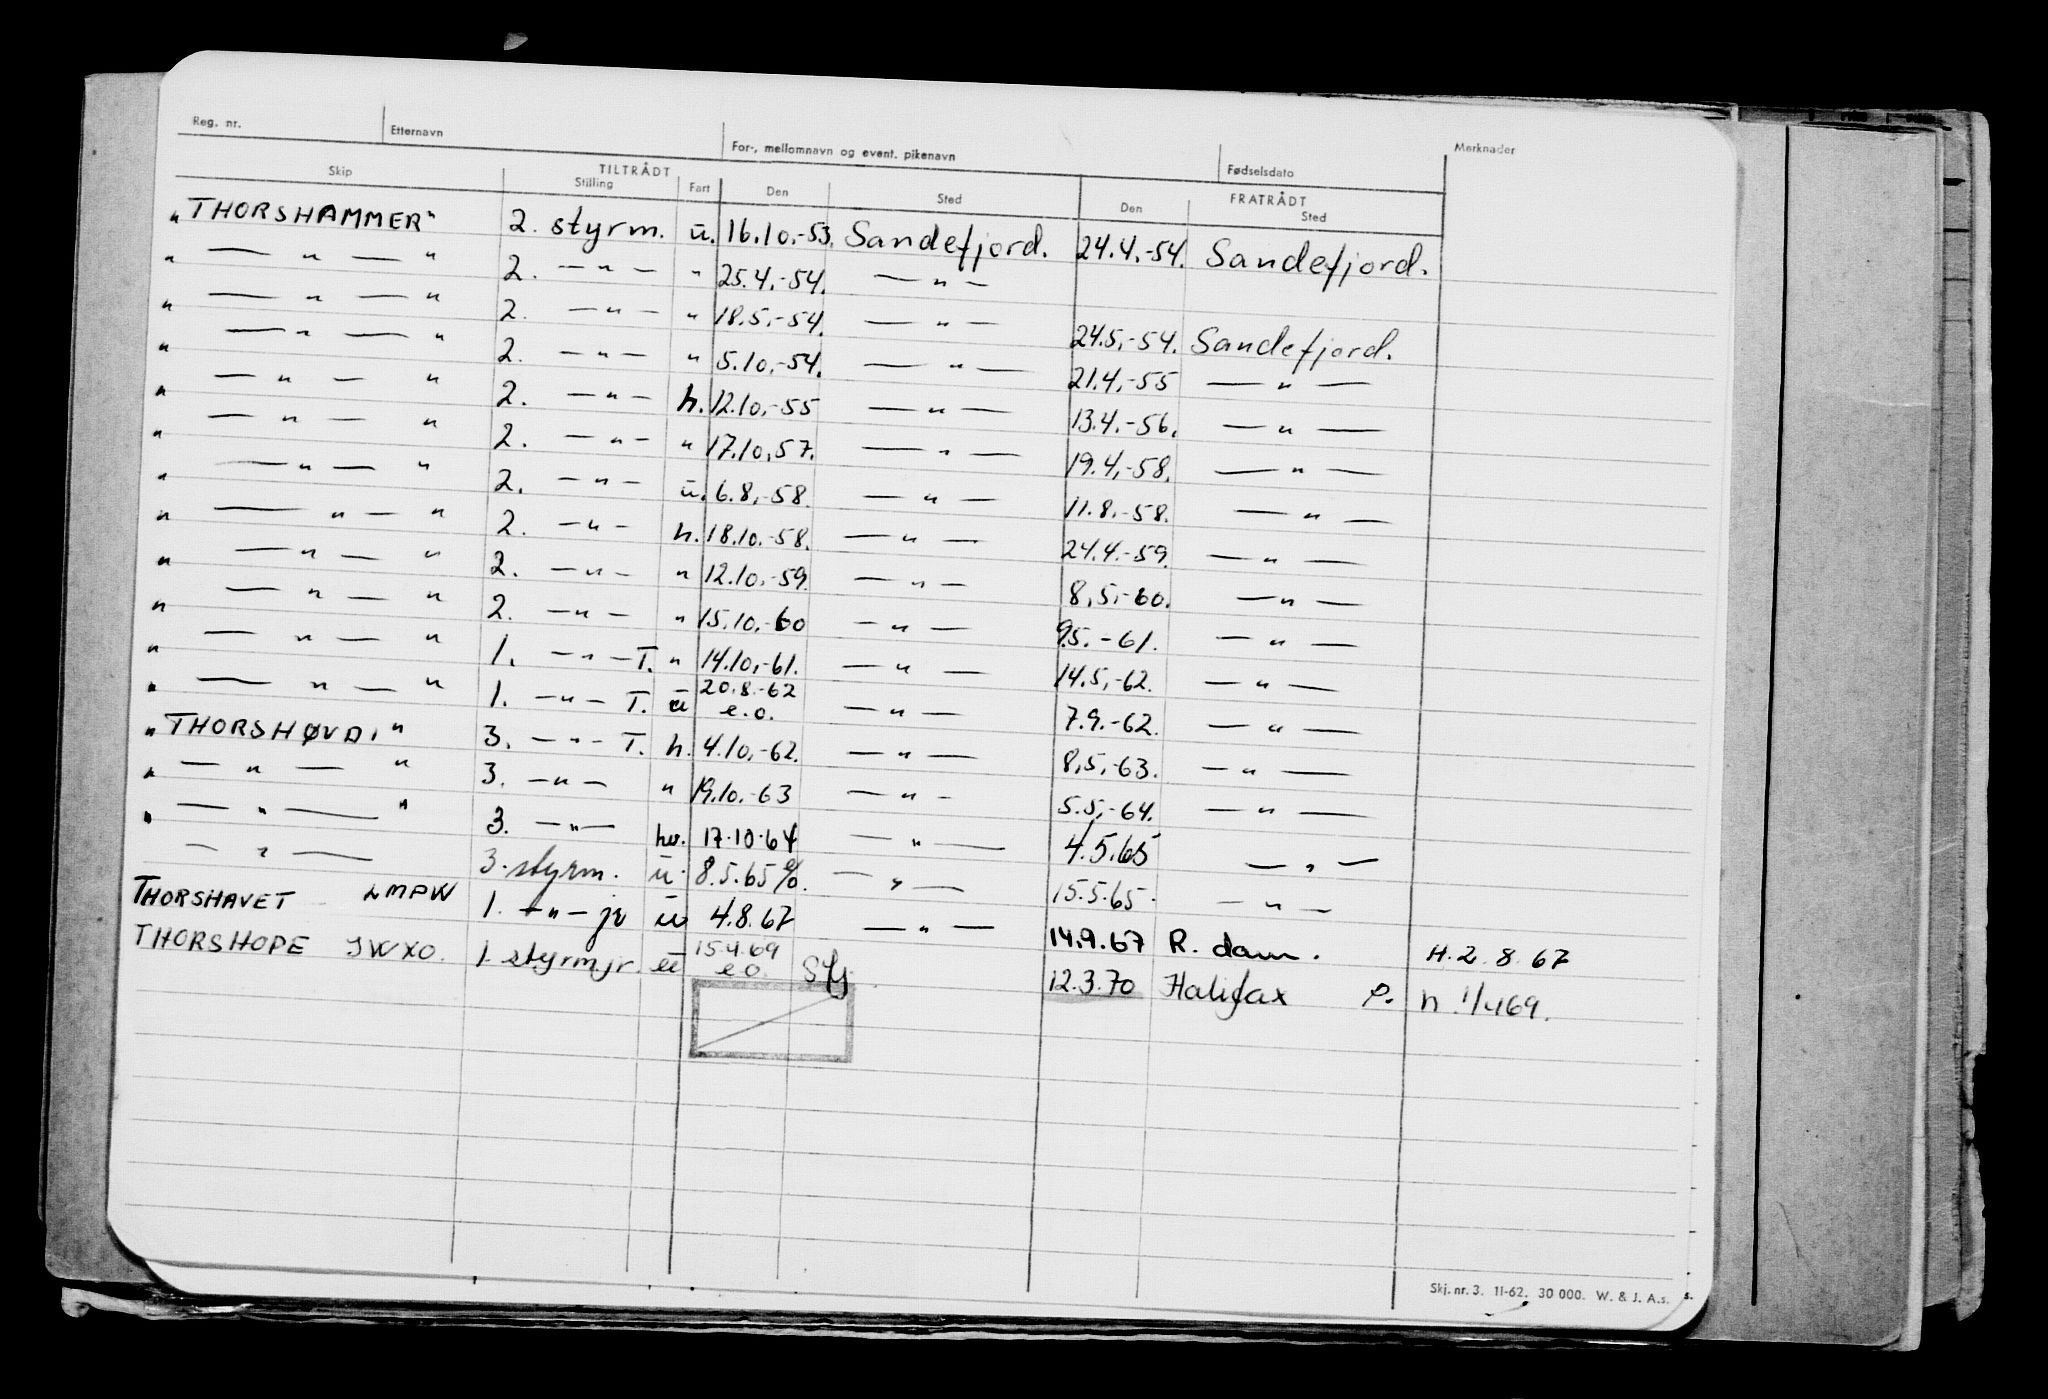 Reg. nr. Etternavn For-, mellomnavn og event. pikenavn Fødselsdato Merknader
Skip TILTRÅDT Stilling Fart Den Sted FRATRÅDT Den Sted
"THORSHAMMER" 2. styrm. u. 16.10.-53. Sandefjord. 24.4.-54. Sandefjord.
" — " — " 2. — " — " 25.4.-54. — " —
" — " — " 2. — " — " 18.5.-54. — " — 24.5.-54. Sandefjord.
" — " — " 2. — " — " 5.10.-54. — " — 21.4.-55 — " —
" — " — " 2. — " — h. 12.10.-55 — " — 13.4.-56. — " —
" — " — " 2. — " — " 17.10.57. — " — 19.4.-58. — " —
" — " — " 2. — " — u. 6.8.-58. — " — 11.8.-58. — " —
" — " — " 2. — " — h. 18.10.-58. — " — 24.4.-59. — " —
" — " — " 2. — " — " 12.10.-59. — " — 8.5.-60. — " —
" — " — " 2. — " — " 15.10.-60 — " — 9.5.-61. — " —
" — " — " 1. — " — T. " 14.10.-61. — " — 14.5.-62. — " —
" — " — " 1. — " — T. u 20.8.-62 e.o. — " — 7.9.-62. — " —
"THORSHØVDI" 3. — " — T. h. 4.10.-62. — " — 8.5.-63. — " —
" — " — " 3. — " — " 19.10.-63 — " — 5.5.-64. — " —
" — " — " 3. — " — hv. 17.10.64 — " — 4.5.65 — " —
— " — 3. styrm. u. 8.5.65 — " — 15.5.65. — " —
THORSHAVET LMPW 1. — " — jr u 4.8.67 — " — 14.9.67 R. dam. H. 2.8.67
THORSHOPE JWXO. 1. styrm jr. u 15.4.69 e.o. Sfj 12.3.70 Halifax P. h. 1/469.
Skj. nr. 3. 11-62. 30 000. W. & J. A.s.